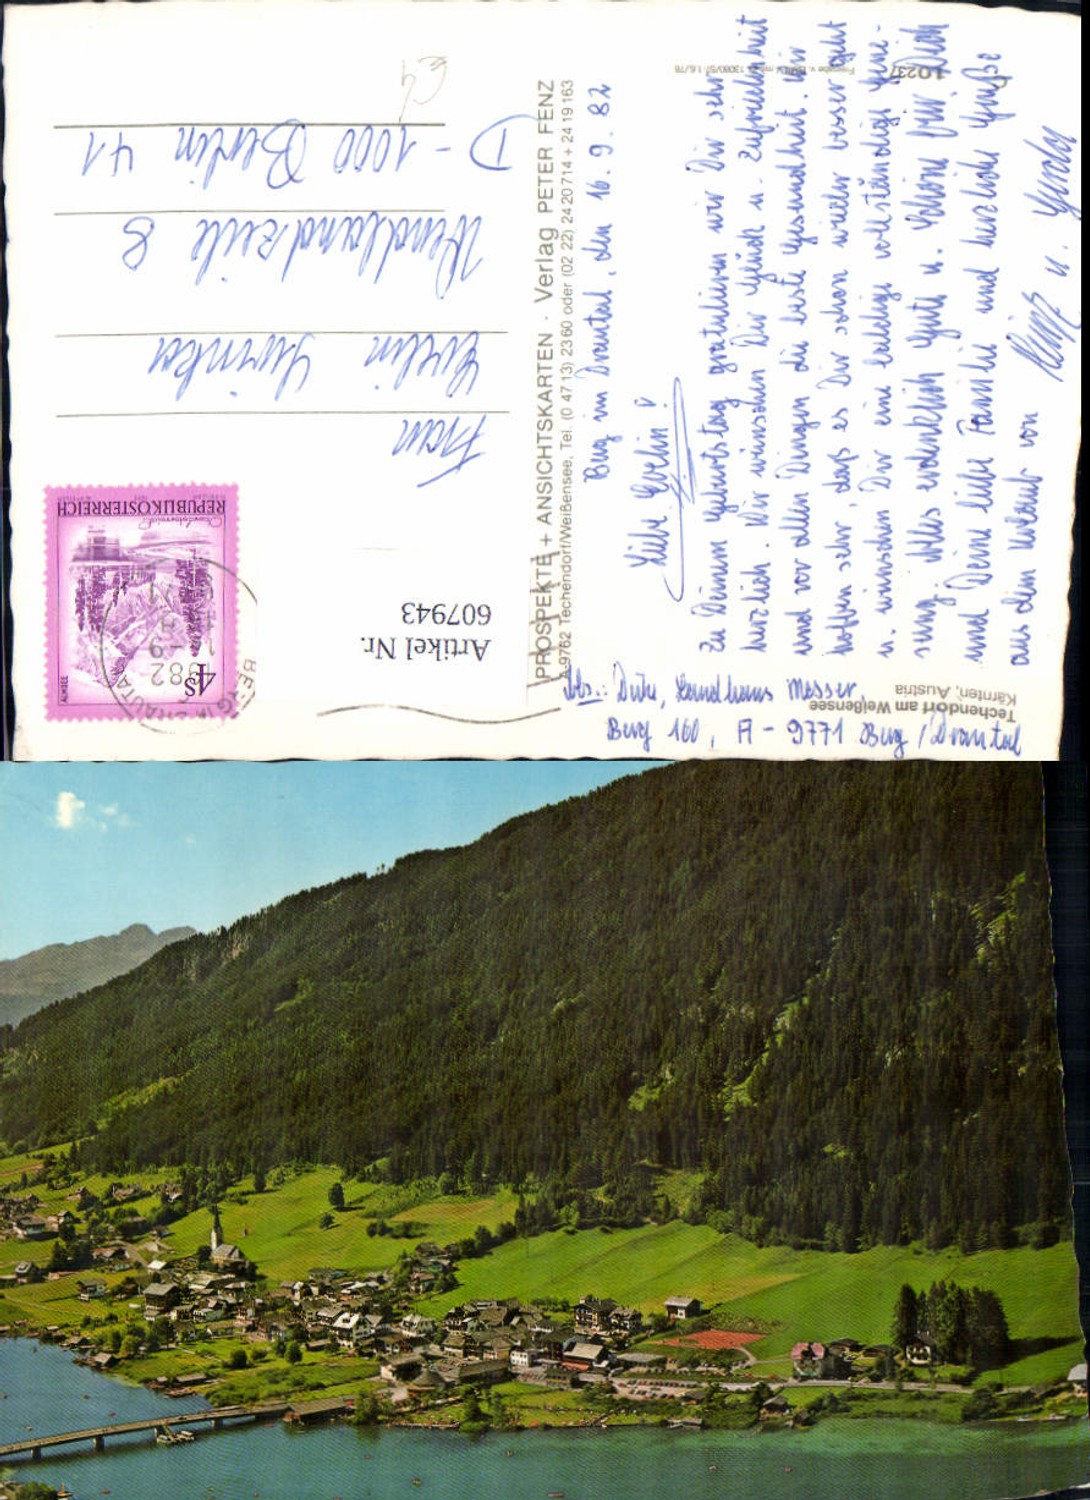 Techendorf am Weißensee
Kärnten, Austria
Abs.: Duhe, Landhaus Messer,
Berg 160, A-9771 Berg / Drautal
Berg im Drautal, den 16. 9. 82
Liebe Evelin!
Zu Deinem Geburtstag gratulieren wir Dir sehr
herzlich. Wir wünschen Dir Glück u. Zufriedenheit
und vor allen Dingen die beste Gesundheit. Wir
hoffen sehr, daß es Dir schon wieder besser geht
u. wünschen Dir eine baldige vollständige Gene-
sung. Alles erdenklich Gute u. Schöne für Dich
und Deine liebe Familie und herzliche Grüße
aus dem Urlaub von
Heinz u. Gerda
PROSPEKTE + ANSICHTSKARTEN · Verlag PETER FENZ
A-9762 Techendorf/Weißensee, Tel. (0 47 13) 23 60 oder (02 22) 24 20 714 + 24 19 163
10237
Artikel Nr.
607943
REPUBLIK ÖSTERREICH
ALMSEE
4S
Frau
Evelin
Wendlandzeile 8
D-1000 Berlin 41